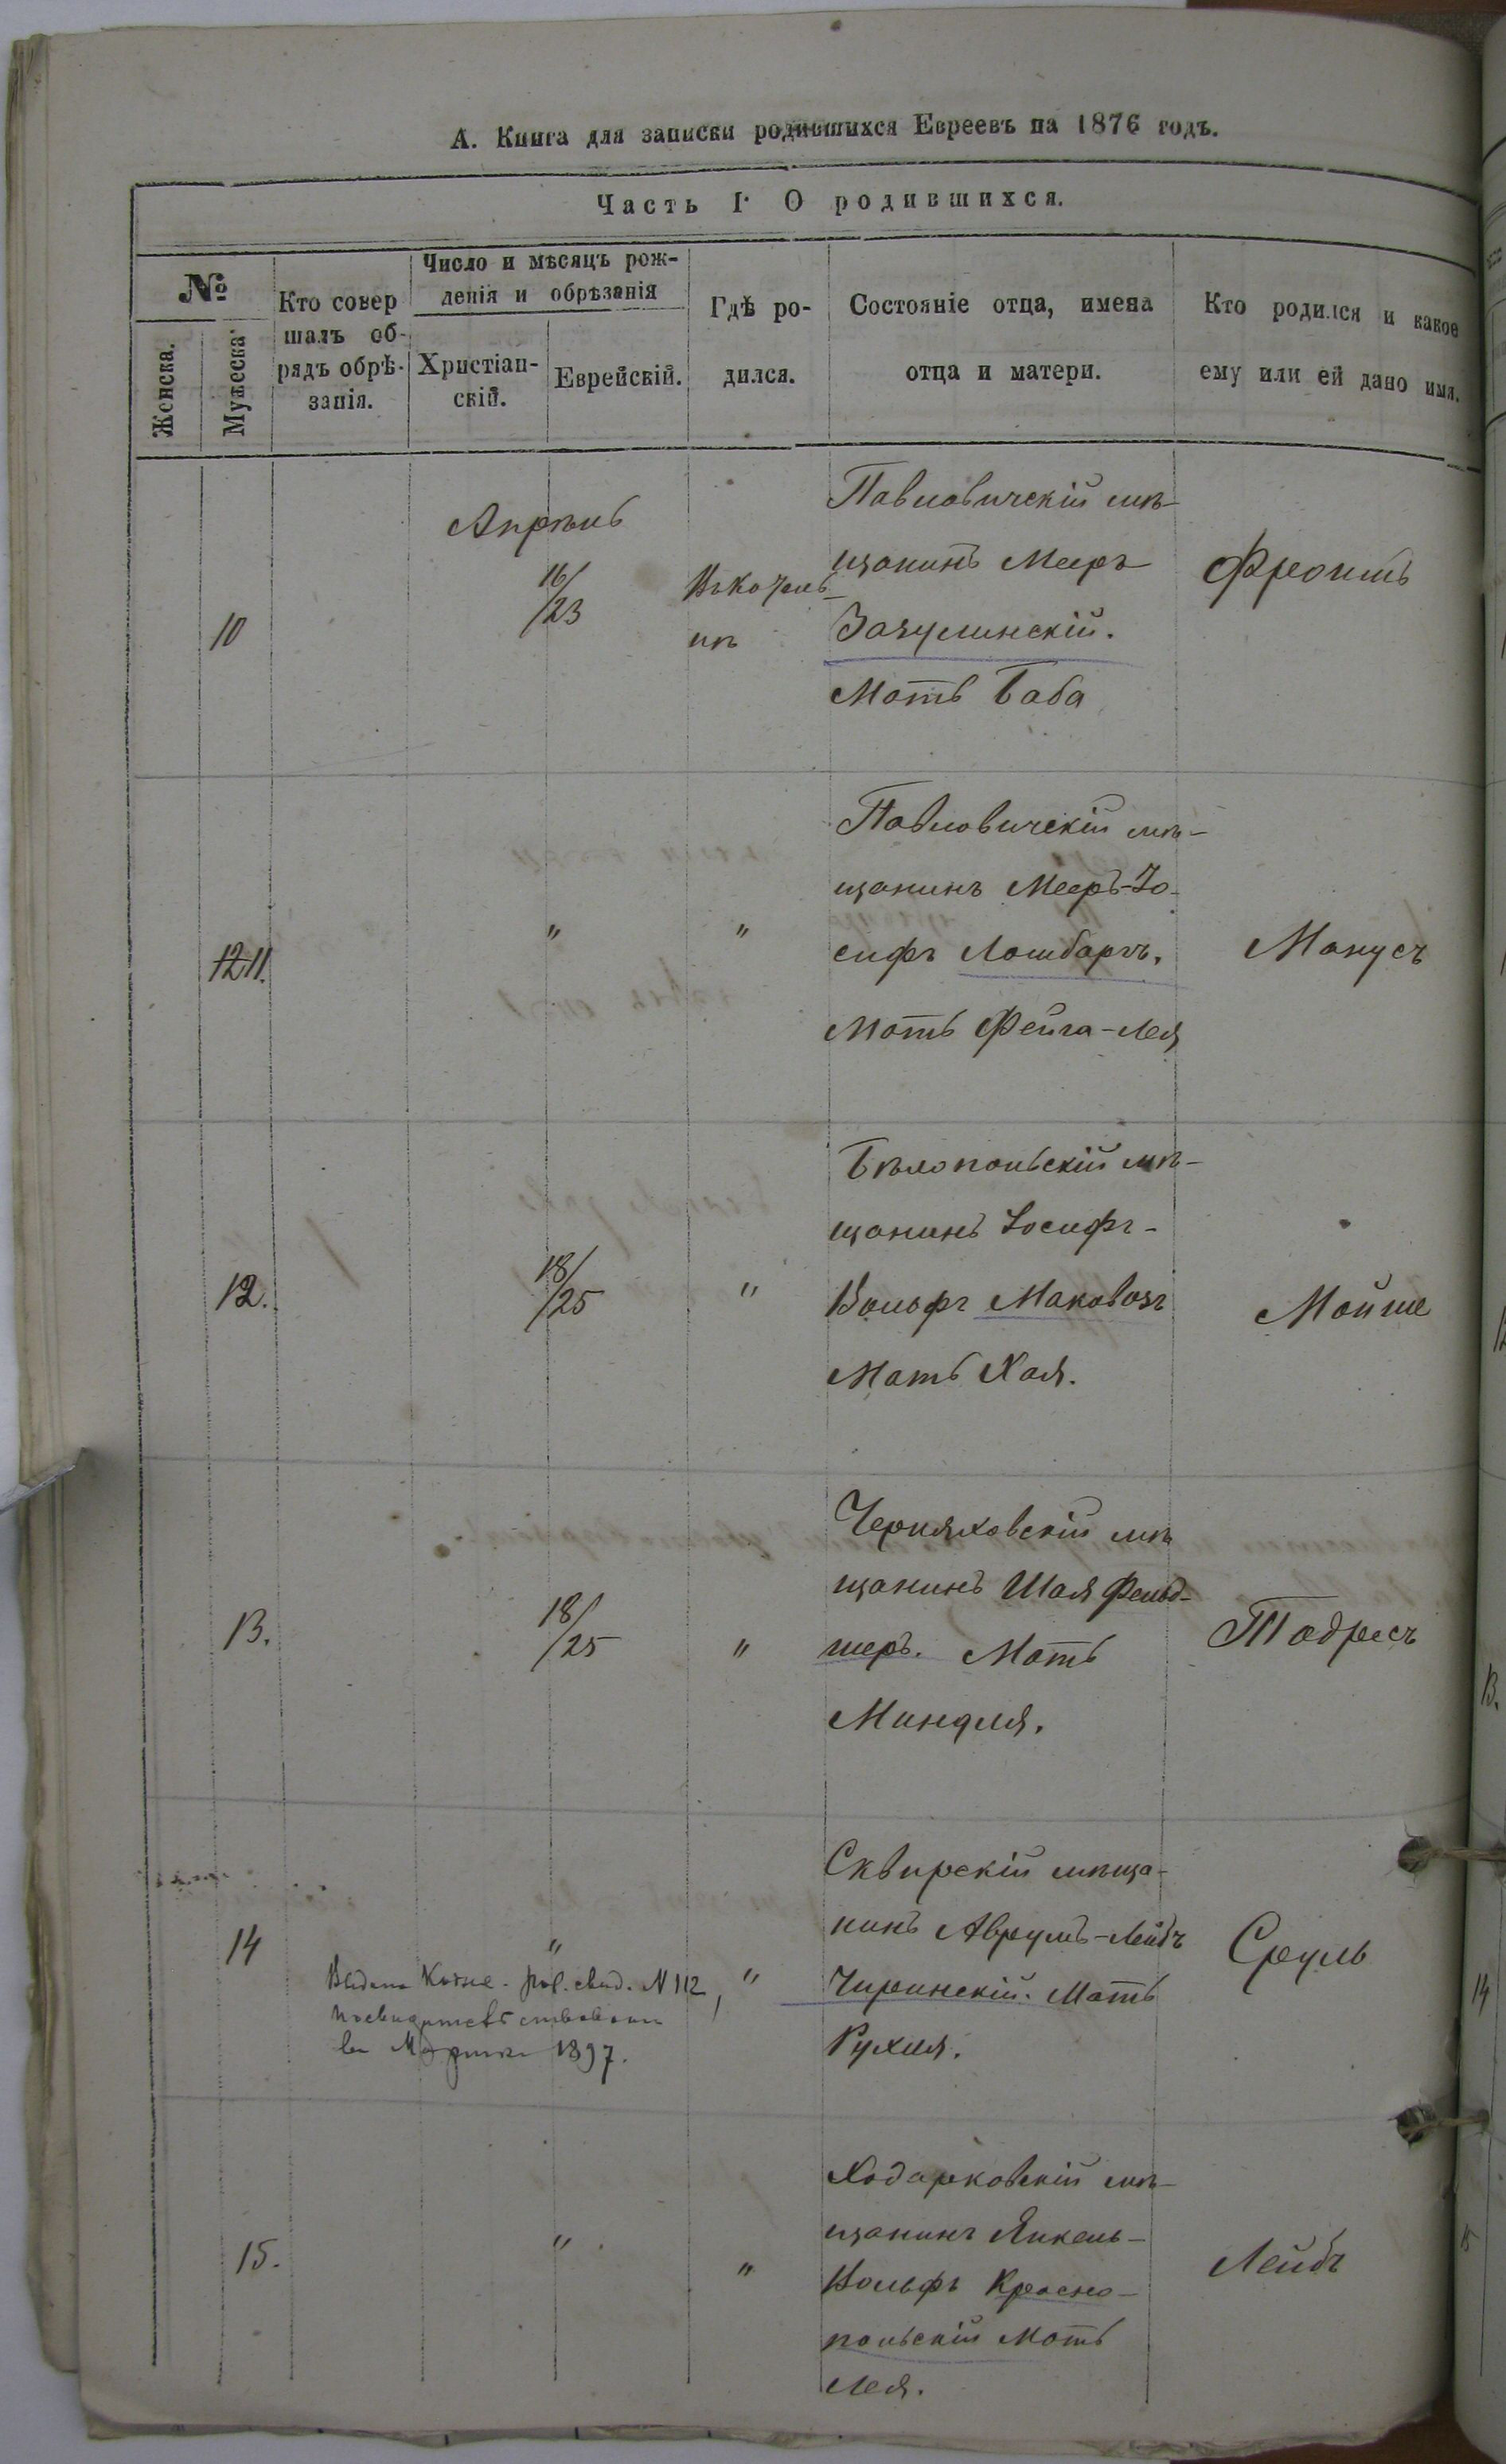 А. Книга для записки родившихся Евреевъ на 1876 годъ.
Часть I. О родившихся.
№
Женска.
Мужеска.
Кто совер
шалъ об-
рядъ обрѣ-
занія.
Число и мѣсяцъ рож-
денія и обрѣзанія
Христіан-
скій.
Еврейскій.
Гдѣ ро-
дился.
Состояніе отца, имена
отца и матери.
Кто родился и какое
ему или ей дано имя.
10
Апрѣль
16/
/23
Павловичскій мѣ-
щанинъ Мееръ
Зозулинскій.
Мать Баба
Фроимъ
12 11.
"
"
Павловичскій мѣ-
щанинъ Мееръ-Іо-
сифъ Ломбартъ.
Мать Фейга-Лея
Манусъ
12.
18/
/25
"
Бѣлопольскій мѣ-
щанинъ Іосифъ-
Вольфъ Маковозъ
Мать Хая.
Мойше
13.
18/
/25
"
Черняховскій мѣ
щанинъ Шая Фельд-
шеръ. Мать
Миндля.
Тодресъ
14
"
"
Сквирскій мѣща-
нинъ Аврумъ-Лейбъ
Чиринскій. Мать
Рухля.
Сруль
Выдана свид. N 112,
1897.
15.
"
"
Ходарковскій мѣ-
щанинъ Янкель-
Вольфъ Красно-
польскій Мать
Лея.
Лейбъ